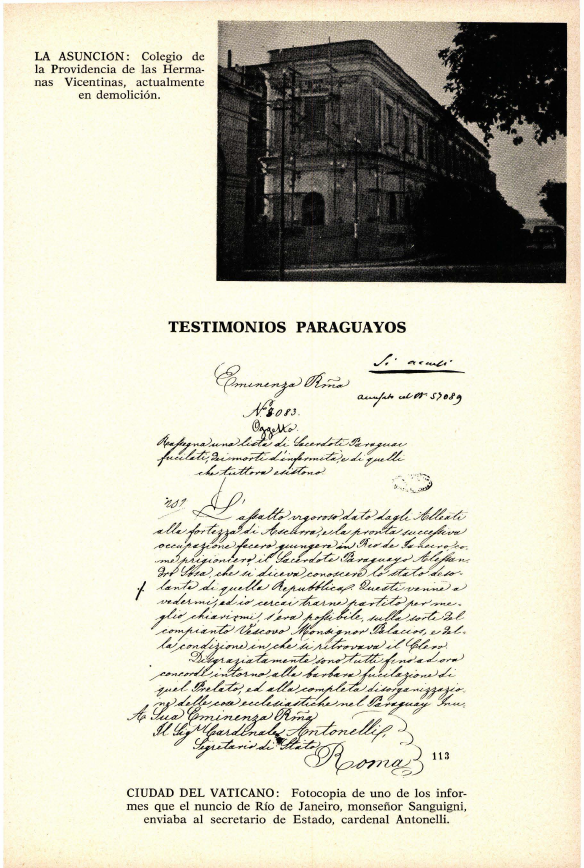 LA ASUNCIÓN: Colegio de
la Providencia de las Herma-
nas Vicentinas, actualmente
en demolición.
TESTIMONIOS PARAGUAYOS
Si accusi
Eminenza Rm̃a
annesso al Nº 57089
Nº 3083.
Oggetto.
Rassegna una lista di Sacerdoti Paraguai
fucilati, dei morti d'infermità, e di quelli
che tuttora esistono
L'assalto vigoroso dato dagli Alleati
alla fortezza di Ascurra, e la pronta successiva
occupazione fecero giungere in Rio de Janeiro, co-
me prigioniero il Sacerdote Paraguayo Alessan-
dro Sosa, che si diceva conoscere lo stato deso-
lante di quella Repubblica. Questi venne a
vedermi, ed io cercai trarne partito per me-
glio chiarirmi, s'era possibile, sulla sorte del
compianto Vescovo Monsignor Palacios, e del-
la condizione in che si ritrovava il Clero
Disgraziatamente sono tutti fino ad ora
concordi intorno alla barbara fucilazione di
quel Prelato, ed alla completa disorganizzazio-
ne delle cose ecclesiastiche nel Paraguay
A Sua Eminenza Rm̃a
Il Sigr Cardinale Antonelli
Segretario di Stato
Roma
113
CIUDAD DEL VATICANO: Fotocopia de uno de los infor-
mes que el nuncio de Río de Janeiro, monseñor Sanguigni,
enviaba al secretario de Estado, cardenal Antonelli.